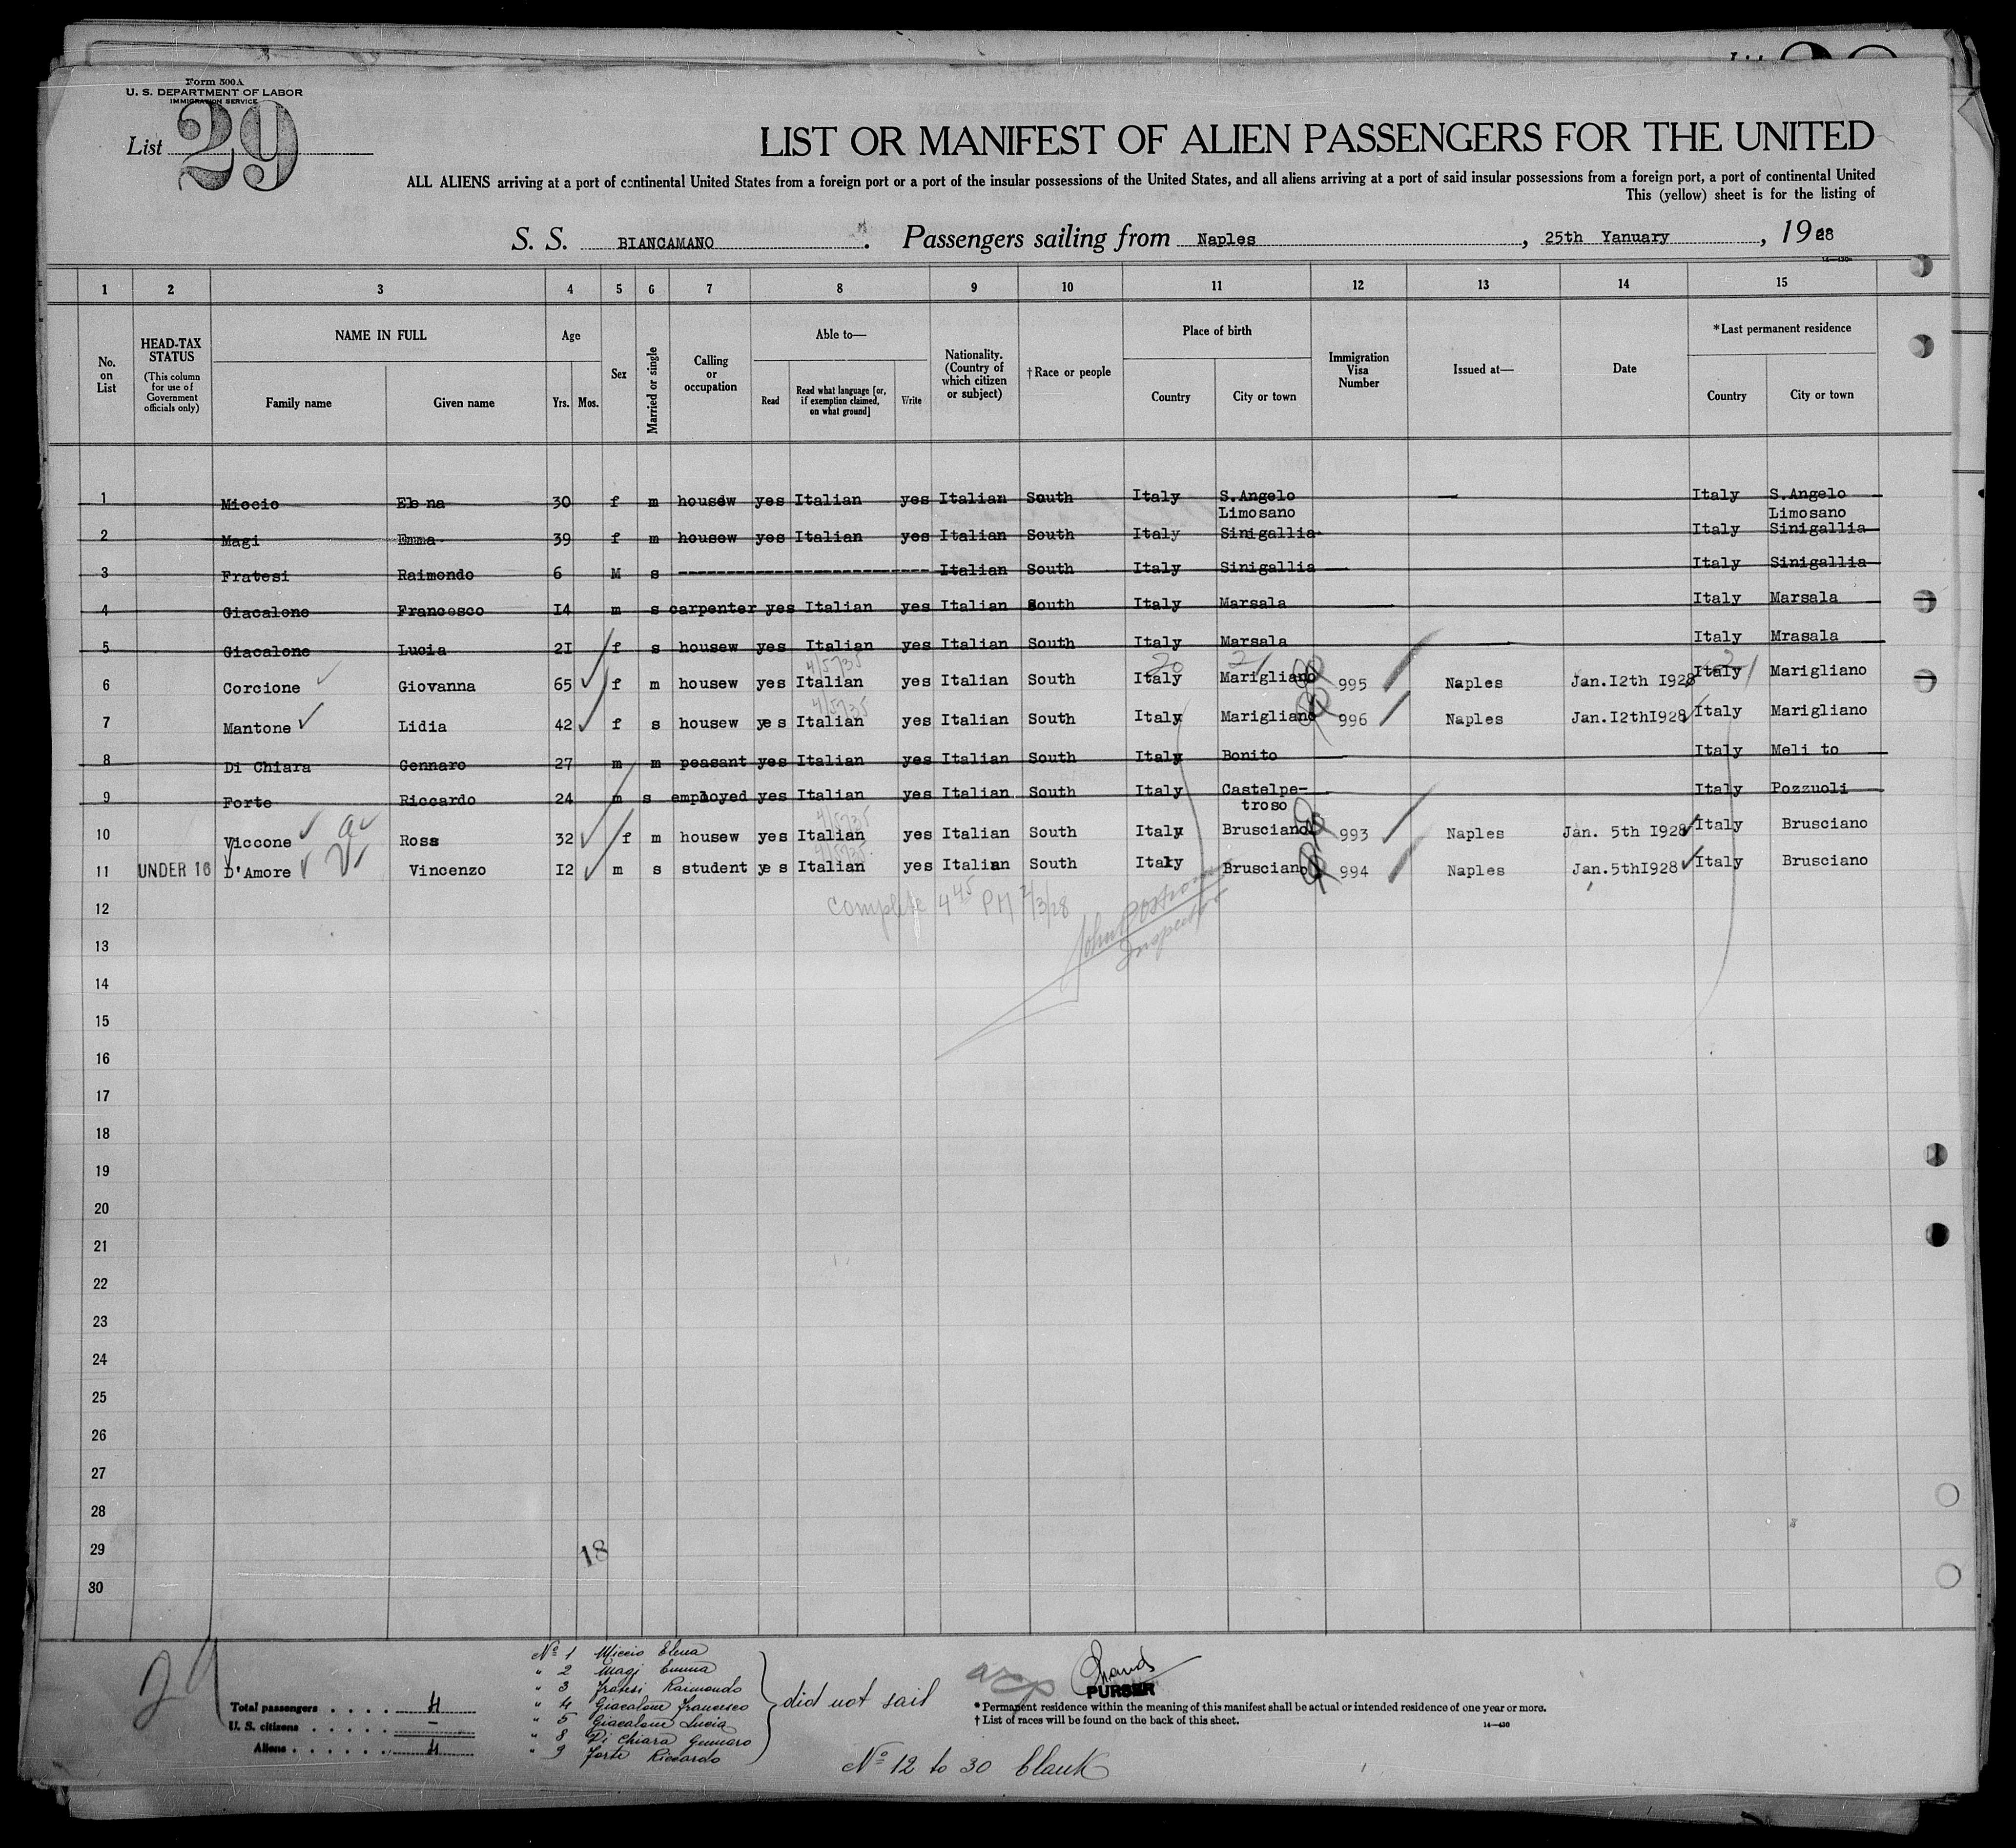 Form 500A
U. S. DEPARTMENT OF LABOR
IMMIGRATION SERVICE
List 29
LIST OR MANIFEST OF ALIEN PASSENGERS FOR THE UNITED
ALL ALIENS arriving at a port of continental United States from a foreign port or a port of the insular possessions of the United States, and all aliens arriving at a port of said insular possessions from a foreign port, a port of continental United
This (yellow) sheet is for the listing of
S. S. BIANCAMANO. Passengers sailing from Naples, 25th Yanuary, 1928
1 2 3 4 5 6 7 8 9 10 11 12 13 14 15
No. on List
HEAD-TAX STATUS (This column for use of Government officials only)
NAME IN FULL
Family name Given name
Age
Yrs. Mos.
Sex
Married or single
Calling or occupation
Able to—
Read Read what language [or, if exemption claimed, on what ground] Write
Nationality. (Country of which citizen or subject)
†Race or people
Place of birth
Country City or town
Immigration Visa Number
Issued at—
Date
*Last permanent residence
Country City or town
1 Miccio Elena 30 f m housew yes Italian yes Italian South Italy S.Angelo Limosano Italy S.Angelo Limosano
2 Magi Emma 39 f m housew yes Italian yes Italian South Italy Sinigallia Italy Sinigallia
3 Fratesi Raimondo 6 M s Italian South Italy Sinigallia Italy Sinigallia
4 Giacalone Francesco I4 m s carpenter yes Italian yes Italian South Italy Marsala Italy Marsala
5 Giacalone Lucia 2I f s housew yes Italian yes Italian South Italy Marsala Italy Mrasala
6 Corcione Giovanna 65 f m housew yes Italian yes Italian South Italy Marigliano 995 Naples Jan.I2th I928 Italy Marigliano
7 Mantone Lidia 42 f s housew yes Italian yes Italian South Italy Marigliano 996 Naples Jan.I2thI928 Italy Marigliano
8 Di Chiara Gennaro 27 m m peasant yes Italian yes Italian South Italy Bonito Italy Meli to
9 Forte Riccardo 24 m s employed yes Italian yes Italian South Italy Castelpe-troso Italy Pozzuoli
10 Viccone Rosa 32 f m housew yes Italian yes Italian South Italy Brusciano 993 Naples Jan. 5th I928 Italy Brusciano
11 UNDER 16 D'Amore Vincenzo I2 m s student yes Italian yes Italian South Italy Brusciano 994 Naples Jan.5thI928 Italy Brusciano
12 Complete 4 45 PM 2/3/28
Inspector
13
14
15
16
17
18
19
20
21
22
23
24
25
26
27
28
29
18
30
29
Total passengers . . . . 4
U. S. citizens . . . . . –
Aliens . . . . . . 4
Nº 1 Miccio Elena
" 2 Magi Emma
" 3 Fratesi Raimondo
" 4 Giacalone Francesco
" 5 Giacalone Lucia
" 8 Di Chiara Gennaro
" 9 Forte Riccardo
did not sail
PURSER
* Permanent residence within the meaning of this manifest shall be actual or intended residence of one year or more.
† List of races will be found on the back of this sheet.
14—430
Nº 12 to 30 blank